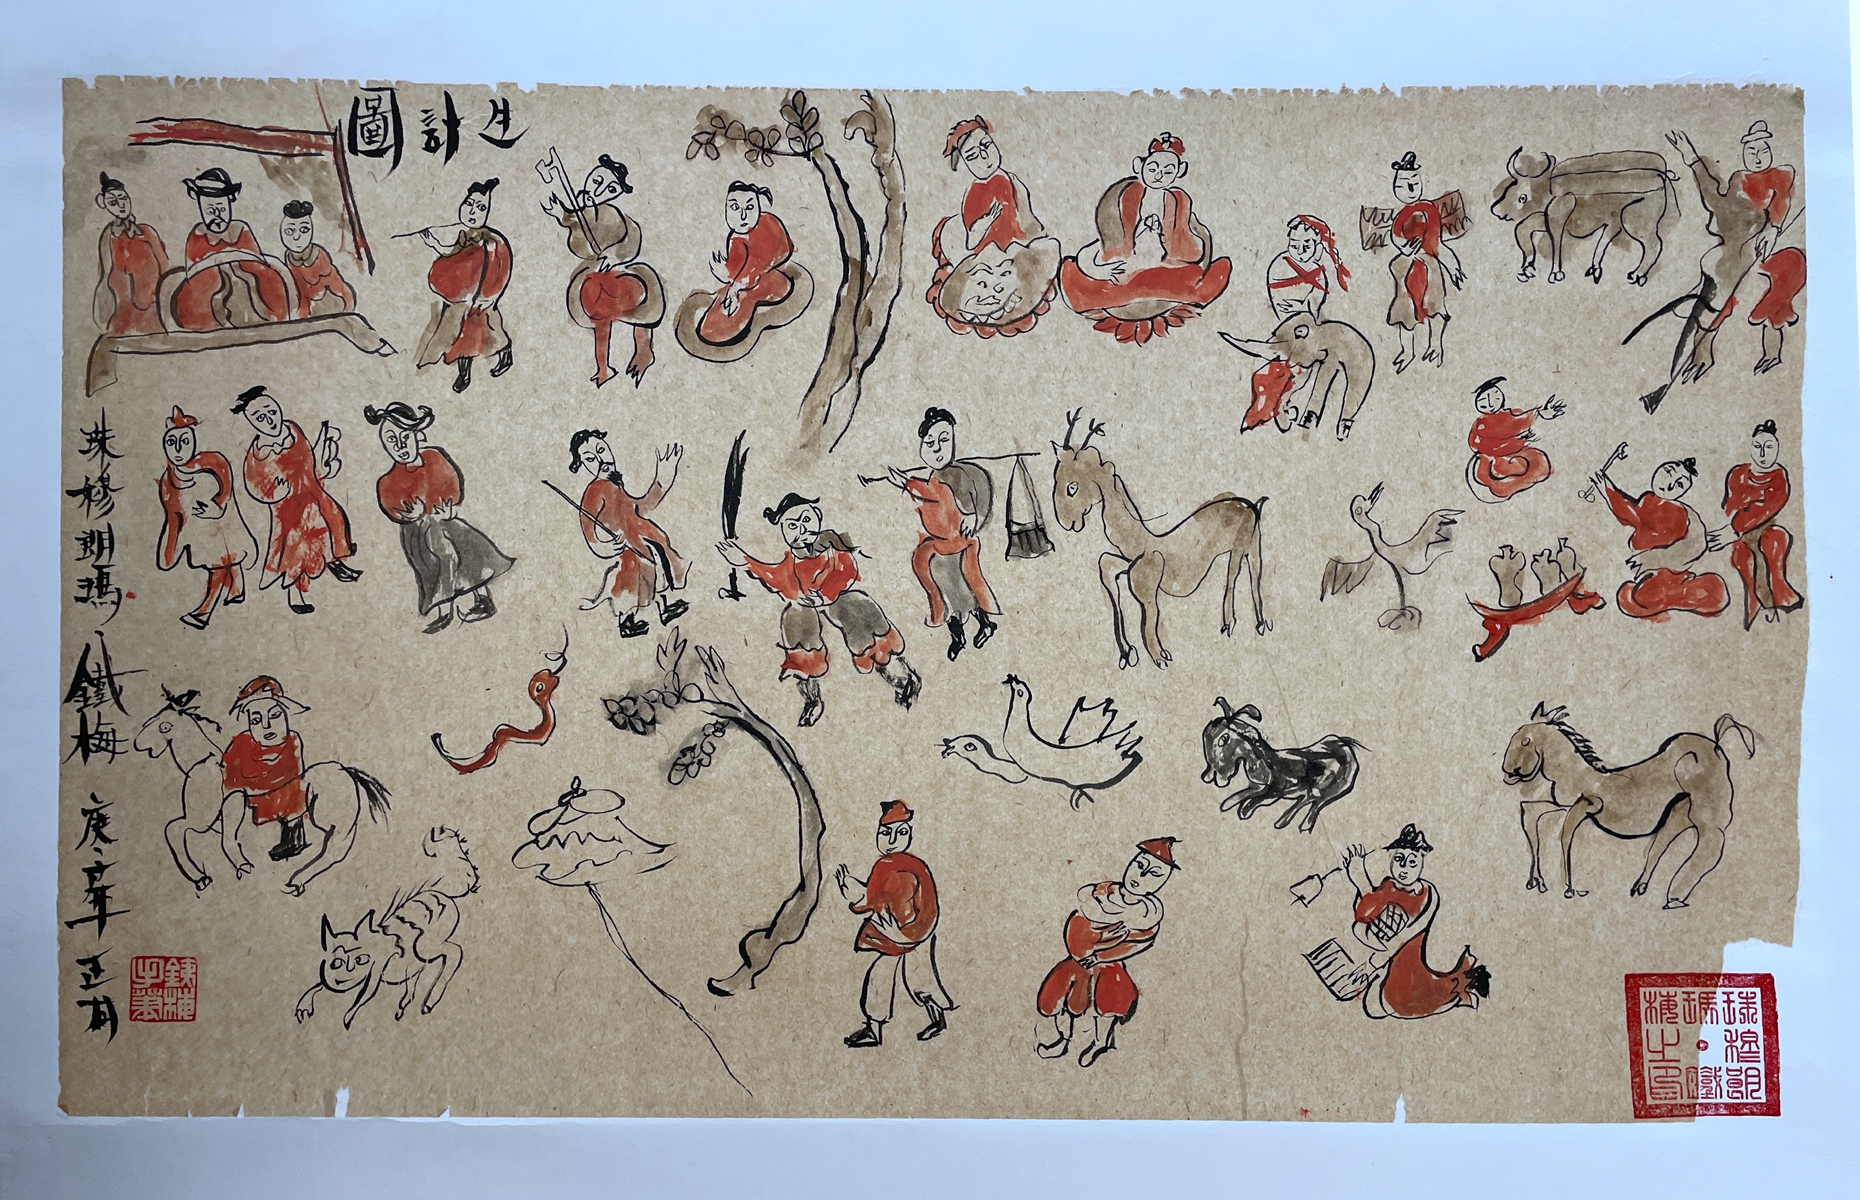 生計圖
珠穆朗瑪、鐵梅 庚子年 正月
鐵梅之美
珠穆朗瑪·鐵梅之印